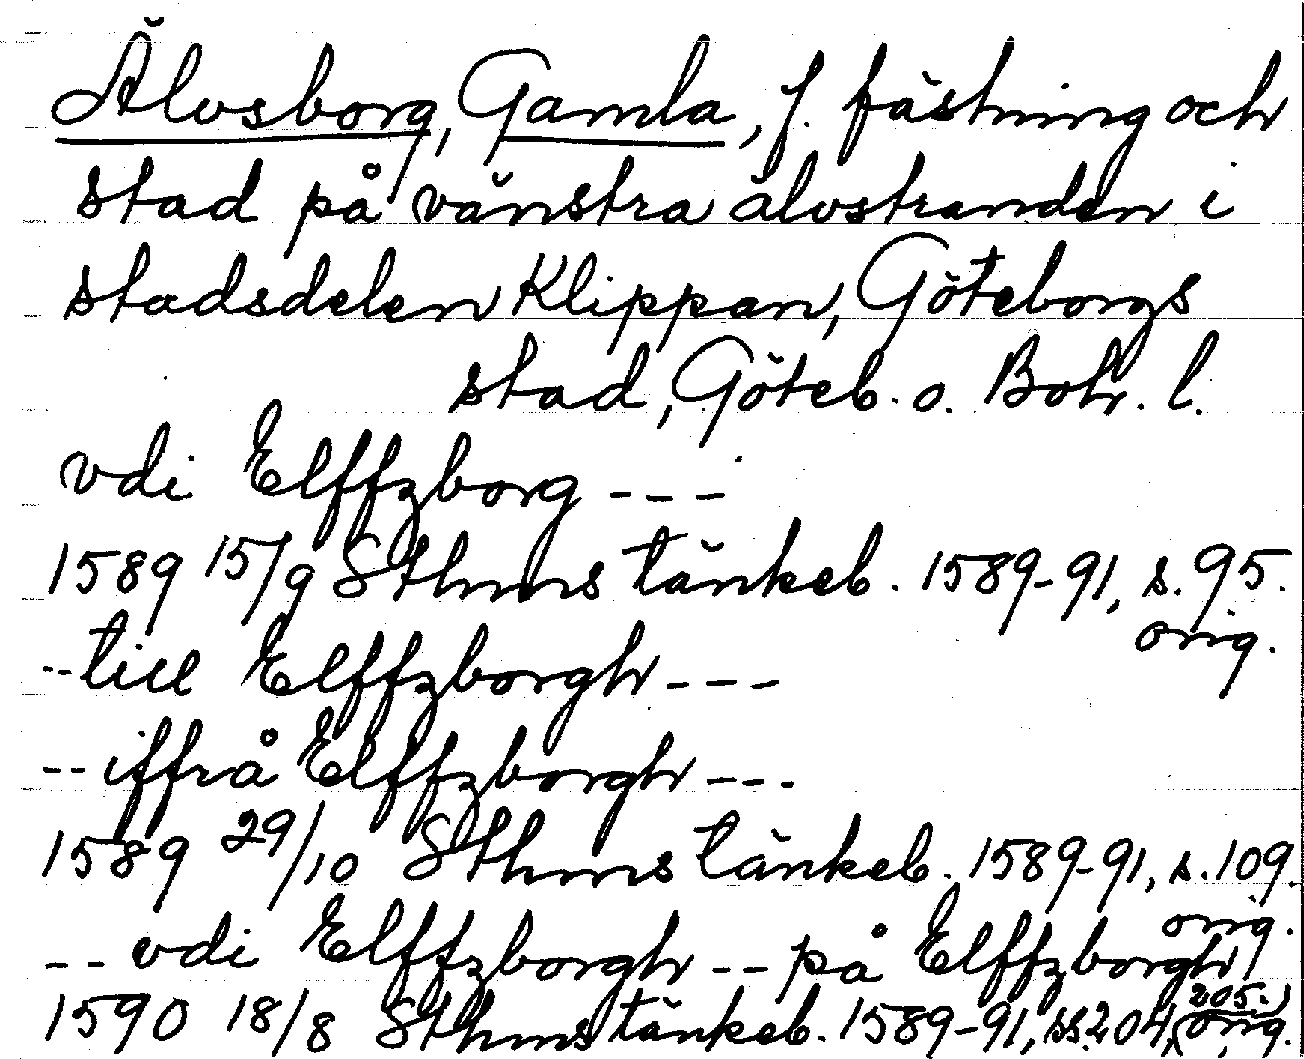 Älvsborg, Gamla, f. fästning och
stad på vänstra älvstranden i
stadsdelen Klippan, Göteborgs
stad, Göteb. o. Boh. l.
vdi Elffzborg ---
1589 15/9 Sthms tänkeb. 1589-91, s. 95.
orig.
--till Elffzborgh ---
-- iffrå Elffzborgh ---
1589 29/10 Sthms tänkeb. 1589-91, s. 109.
orig.
-- vdi Elffzborgh -- på Elffzborgh
1590 18/8 Sthms tänkeb. 1589-91, ss. 204, 205.
(orig.)